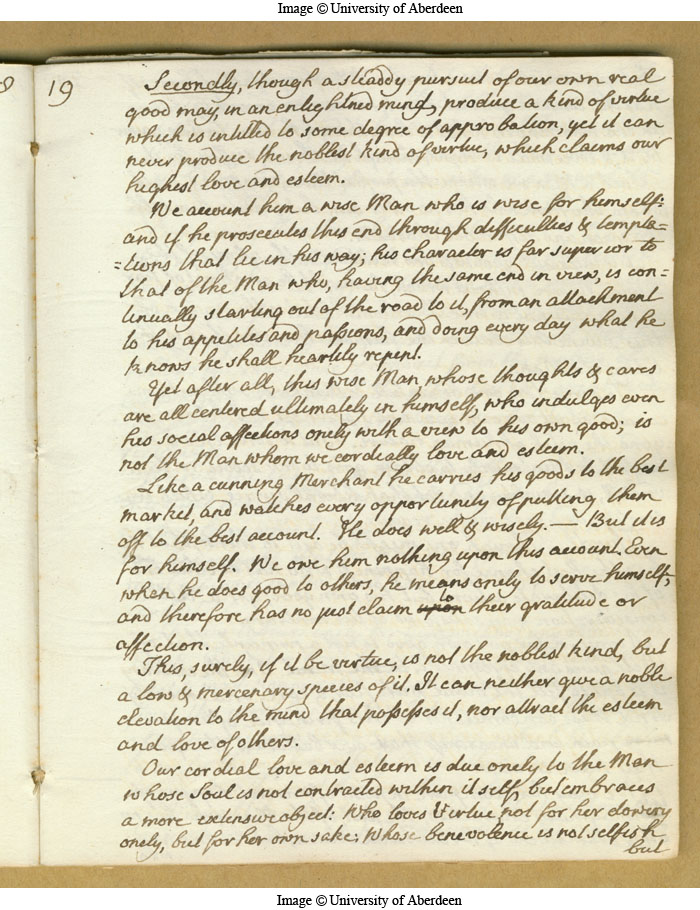 Image © University of Aberdeen
19
Secondly, though a steaddy pursuit of our own real
good may, in an enlightned mind, produce a kind of virtue
which is intitled to some degree of approbation, yet it can
never produce the noblest kind of virtue, which claims our
highest love and esteem.
We account him a wise Man who is wise for himself:
and if he prosecutes this end through difficulties & tempta=
=tions that lie in his way; his character is far superior to
that of the Man who, having the same end in view, is con=
tinually starting out of the road to it, from an attachment
to his appetites and passions, and doing every day what he
knows he shall heartily repent.
Yet after all, this wise Man whose thoughts & cares
are all centered ultimately in himself, who indulges even
his social affections onely with a view to his own good; is
not the Man whom we cordially love and esteem.
Like a cunning Merchant he carries his goods to the best
market, and watches every opportunity of putting them
off to the best account. He does well & wisely. — But it is
for himself. We owe him nothing upon this account. Even
when he does good to others, he means onely to serve himself;
and therefore has no just claim to upon their gratitude or
affection.
This, surely, if it be virtue, is not the noblest kind, but
a low & mercenary species of it. It can neither give a noble
elevation to the mind that possesses it, nor attract the esteem
and love of others.
Our cordial love and esteem is due onely to the Man
whose Soul is not contracted within it self, but embraces
a more extensive object: Who loves Virtue, not for her dowery
onely, but for her own sake: Whose benevolence is not selfish
but
Image © University of Aberdeen